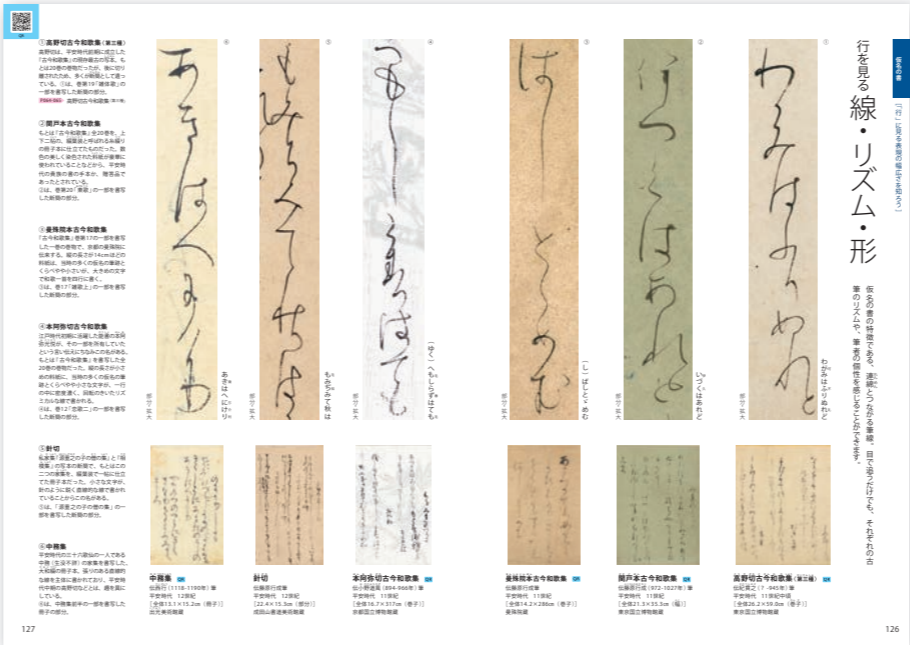 仮名の書
「行」に見る表現の幅広さを知ろう
行を見る 線・リズム・形
仮名の書の特徴である、連綿とつながる筆線。目で追うだけでも、それぞれの古
筆のリズムや、筆者の個性を感じることができます。
①
わがみはふりぬれど
部分・拡大
②
いづくはあれど
部分・拡大
③
(し)ばしとゞめむ
部分・拡大
高野切古今和歌集(第三種)
伝紀貫之(?-945年)筆
平安時代 11世紀中頃
[全体26.2×59.0cm(巻子)]
東京国立博物館蔵
関戸本古今和歌集
伝藤原行成(972-1027年)筆
平安時代 11世紀
[全体21.3×35.3cm(幅)]
東京国立博物館蔵
曼殊院本古今和歌集
伝藤原行成筆
平安時代 11世紀
[全体14.2×286cm(巻子)]
曼殊院蔵
126
④
(ゆく)へもしらずはても
部分・拡大
⑤
もみぢみて秋は
部分・拡大
⑥
あきはへにけり
部分・拡大
本阿弥切古今和歌集
伝小野道風(894-966年)筆
平安時代 11世紀
[全体16.7×317cm(巻子)]
京都国立博物館蔵
針切
伝藤原行成筆
平安時代 12世紀
[22.4×15.3cm(部分)]
成田山書道美術館蔵
中務集
伝西行(1118-1190年)筆
平安時代 12世紀
[全体13.1×15.2cm(冊子)]
出光美術館蔵
①高野切古今和歌集(第三種)
高野切は、平安時代前期に成立した
『古今和歌集』の現存最古の写本。も
とは20巻の巻物だったが、後に切り
離されたため、多くが断簡として遺っ
ている。①は、巻第19「雑体歌」の
一部を書写した断簡の部分。
P064-065 高野切古今和歌集(第三種)
②関戸本古今和歌集
もとは『古今和歌集』全20巻を、上
下二帖の、綴葉装と呼ばれる糸綴り
の冊子本に仕立てたものだった。数
色の美しく染色された料紙が豪華に
使われていることなどから、平安時
代の貴族の書の手本か、贈答品で
あったとされている。
②は、巻第20「東歌」の一部を書写
した断簡の部分。
③曼殊院本古今和歌集
『古今和歌集』巻第17の一部を書写
した一巻の巻物で、京都の曼殊院に
伝来する。縦の長さが14cmほどの
料紙は、当時の多くの仮名の筆跡と
くらべやや小さいが、大きめの文字
で和歌一首を四行に書く。
③は、巻17「雑歌上」の一部を書写
した断簡の部分。
④本阿弥切古今和歌集
江戸時代初期に活躍した能書の本阿
弥光悦が、その一部を所有していた
という言い伝えにちなみこの名がある。
もとは『古今和歌集』を書写した全
20巻の巻物だった。縦の長さが小さ
めの料紙に、当時の多くの仮名の筆
跡とくらべやや小さな文字が、一行
の中に密度濃く、回転のきいたリズ
ミカルな線で書かれる。
④は、巻12「恋歌二」の一部を書写
した断簡の部分。
⑤針切
私家集『源重之の子の僧の集』と『相
模集』の写本の断簡で、もとはこの
二つの家集を、綴葉装で一帖に仕立
てた冊子本だった。小さな文字が、
針のように鋭く直線的な線で書かれ
ていることからこの名がある。
⑤は、『源重之の子の僧の集』の一
部を書写した断簡の部分。
⑥中務集
平安時代の三十六歌仙の一人である
中務(生没不詳)の家集を書写した、
大和綴の冊子本。張りのある直線的
な線を主体に書かれており、平安時
代中期の高野切などとは、趣を異に
している。
⑥は、中務集前半の一部を書写した
冊子の部分。
127